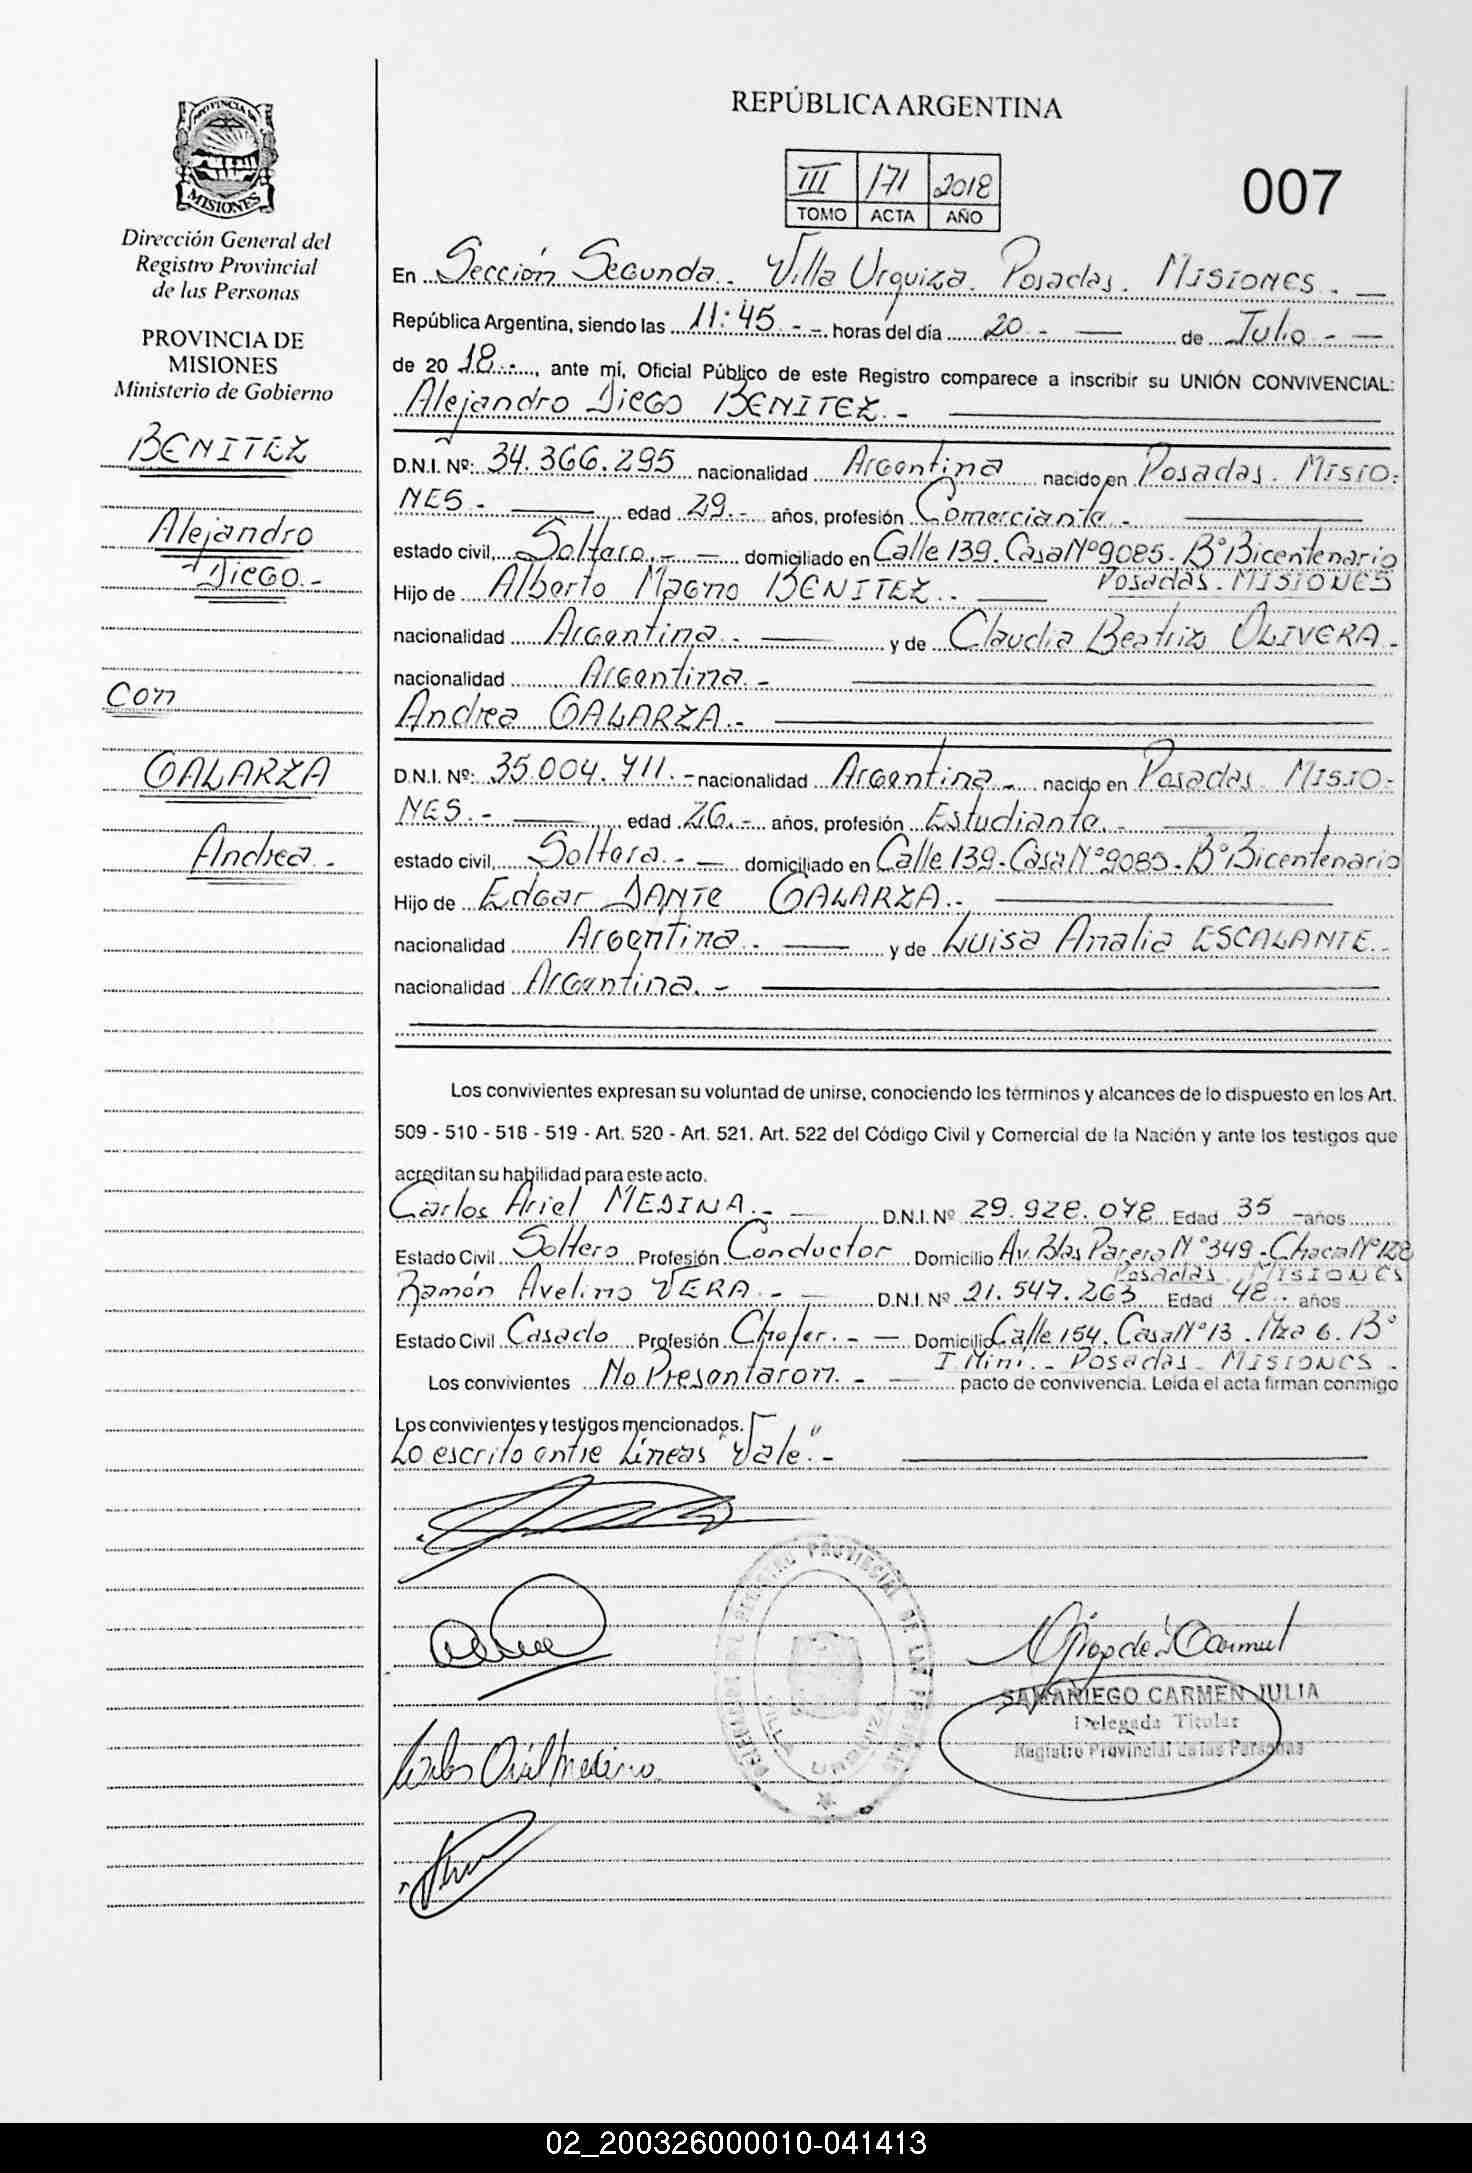 PROVINCIA DE
MISIONES
Dirección General del
Registro Provincial
de las Personas
PROVINCIA DE
MISIONES
Ministerio de Gobierno
BENITEZ
Alejandro
Diego.-
con
GALARZA
Andrea.-
REPÚBLICA ARGENTINA
III 171 2018
TOMO ACTA AÑO
007
En Sección Segunda.. Villa Urquiza. Posadas. MISIONES. —
República Argentina, siendo las 11:45.-- horas del día 20.- — de Julio.--
de 20 18.-., ante mí, Oficial Público de este Registro comparece a inscribir su UNIÓN CONVIVENCIAL:
Alejandro Diego BENITEZ.-
D.N.I. Nº: 34.366.295 nacionalidad Argentina nacido en Posadas. MISIO:
NES.- — edad 29.- años, profesión Comerciante.-
estado civil, Soltero.-- domiciliado en Calle 139. Casa Nº 9085. Bº Bicentenario
Posadas. MISIONES
Hijo de Alberto Magno BENITEZ.. —
nacionalidad Argentina.- — y de Claudia Beatriz OLIVERA.-
nacionalidad Argentina.-
Andrea GALARZA.-
D.N.I. Nº: 35.004.711.- nacionalidad Argentina.- nacido en Posadas. MISIO:
NES.- — edad 26.- años, profesión Estudiante.-
estado civil, Soltera.-- domiciliado en Calle 139. Casa Nº 9085. Bº Bicentenario
Hijo de Edgar DANTE GALARZA.-
nacionalidad Argentina.- — y de Luisa Analia ESCALANTE.-
nacionalidad Argentina.-
Los convivientes expresan su voluntad de unirse, conociendo los términos y alcances de lo dispuesto en los Art.
509 - 510 - 518 - 519 - Art. 520 - Art. 521. Art. 522 del Código Civil y Comercial de la Nación y ante los testigos que
acreditan su habilidad para este acto.
Carlos Ariel MEDINA.- — D.N.I. Nº 29.928.078 Edad 35 - años
Estado Civil Soltero Profesión Conductor Domicilio Av. Blas Parera Nº 349. Chacra Nº 128
Posadas MISIONES
Ramón Avelino VERA.- — D.N.I. Nº 21.547.263 Edad 48.- años
Estado Civil Casado Profesión Chofer.-- Domicilio Calle 154. Casa Nº 13. Mza 6. Bº
I. Mini.- Posadas. MISIONES.-
Los convivientes No Presentaron.- — pacto de convivencia. Leída el acta firman conmigo
Los convivientes y testigos mencionados.
Lo escrito entre Líneas "Vale".-
REGISTRO PROVINCIAL DE LAS PERSONAS
VILLA URQUIZA
SAMANIEGO CARMEN JULIA
Delegada Titular
Registro Provincial de las Personas
Carlos Ariel Medina
02_200326000010-041413